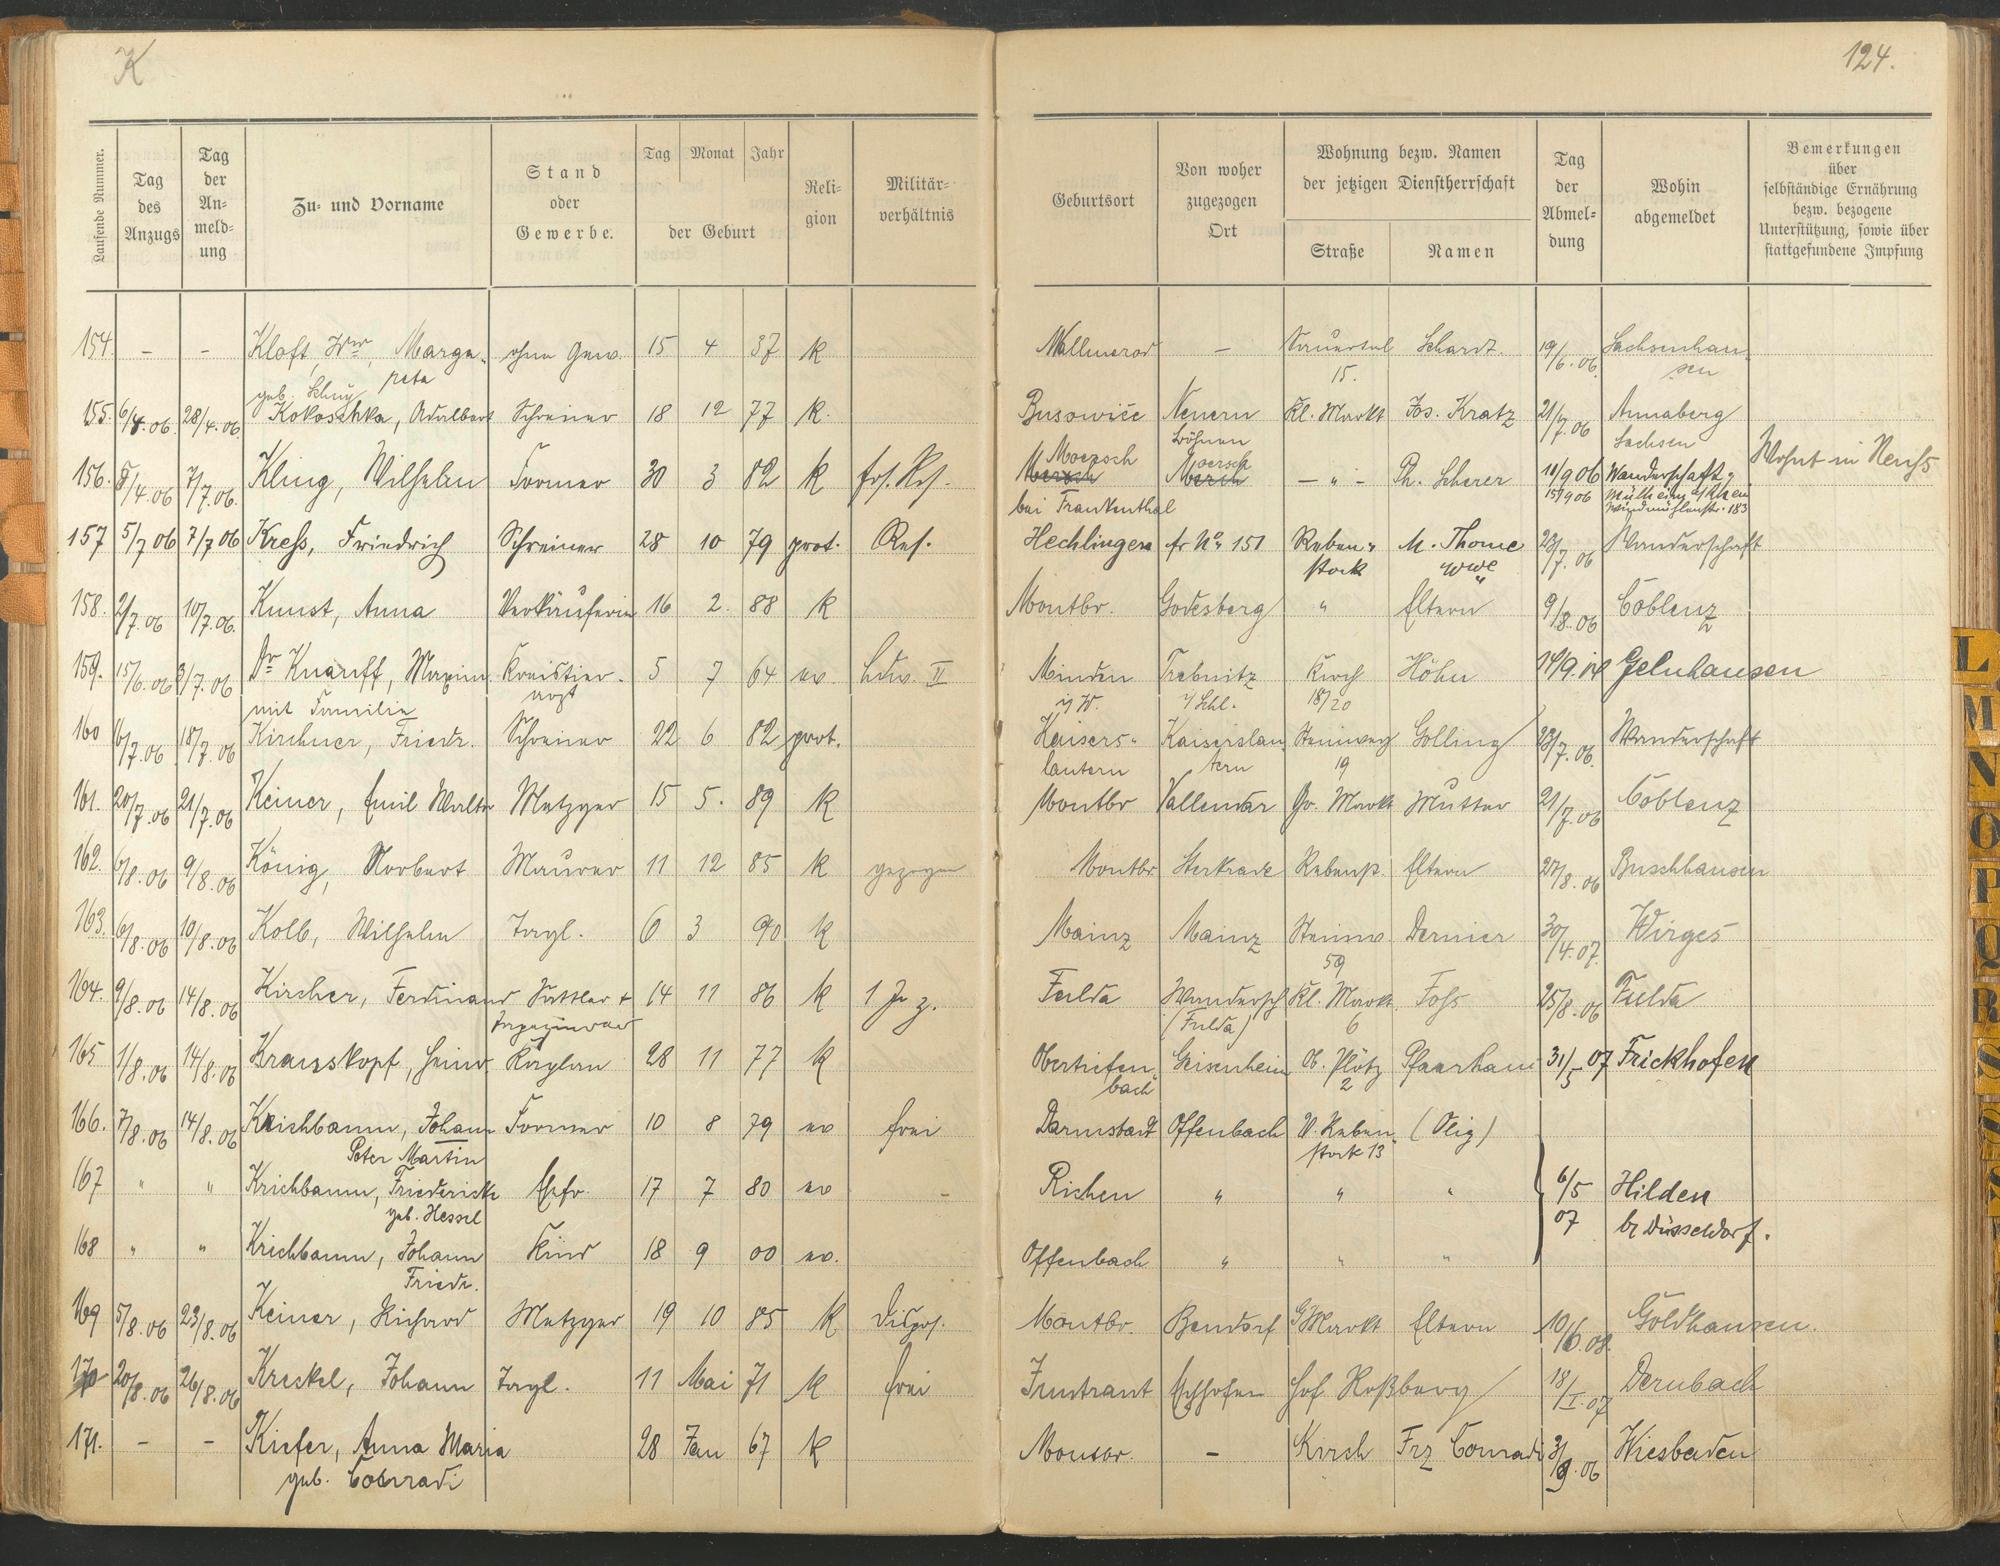 K
124.
Laufende Nummer.
Tag des Anzugs
Tag der Anmeldung
Zu- und Vorname
Stand oder Gewerbe.
Tag Monat Jahr
der Geburt
Religion
Militärverhältnis
Geburtsort
Von woher zugezogen Ort
Wohnung bezw. Namen der jetzigen Dienstherrschaft
Straße
Namen
Tag der Abmeldung
Wohin abgemeldet
Bemerkungen über selbständige Ernährung bezw. bezogene Unterstützung, sowie über stattgefundene Impfung
154. - - Kloft, Wwe, Marga- ohne Gew. 15 4 37 k - Schardt. 19/6.06. Sachsenhau-
reta 15. sen
geb.
155. 6/4.06. 28/4.06. Kokoschka, Adalbert Schreiner 18 12 77 k. Neuern Kl. Markt Jos. Kratz 21/7.06 Annaberg
Böhmen Sachsen
Moersch
156. 5/4.06 7/7.06. Kling, Wilhelm Former 30 3 82 k Moersch - " - Ph. Scherer 11/9 06 Wanderschaft Wohnt in Neuss
bei Frankenthal 15/9 06 Mülheim a/Rhein
Windmühlenstr. 183
157 5/7 06 7/7 06 Kress, Friedrich Schreiner 28 10 79 prot. Res. Hechlingen fr No 151 Reben- M. Thome 23/7.06 Wanderschaft
stock Wwe
158. 2/7.06 10/7.06. Kunst, Anna Verkäuferin 16 2. 88 k Montbr. Godesberg " Eltern 9/8.06 Coblenz
159. 15/6.06 3/7.06 Dr Knauff, Maxim Kreistier- 5 7 64 ev. Ldw. II Minden Trebnitz Kirch Höhn 14/9. Gelnhausen
mit Familie arzt i/W. i/Schl. 18/20
160 6/7.06 18/7.06 Kirchner, Friedr. Schreiner 22 6 82 prot. Kaisers- Kaiserslau Steinweg Golling 23/7.06. Wanderschaft
lautern tern 19
161. 20/7.06 21/7.06 Keiner, Emil Walter Metzger 15 5. 89 k Montbr Vallendar Gr. Markt Mutter 21/7.06 Coblenz
162. 6/8.06 9/8.06 König, Norbert Maurer 11 12 85 k gezogen Montbr Sterkrade Rebenst. Eltern 27/8.06 Buschhausen
163. 6/8.06 10/8.06 Kolb, Wilhelm Tagl. 6 3 90 k Mainz Mainz Steinw Dernier 30/4.07. Wirges
59
164. 9/8.06 14/8.06 Kircher, Ferdinand Sattler + 14 11 86 k Fulda Wandersch Kl. Markt Foss 25/8.06 Fulda
Tapezierer (Fulda) 6
165 1/8.06 14/8.06 Krauskopf, Heinr Kaplan 28 11 77 k Obertiefen- Geisenheim Ob. Plötz Pfaarhaus 31/5 07 Frickhofen
bach 2
166. 7/8.06 14/8.06 Krichbaum, Johann Former 10 8 79 ev frei Darmstadt Offenbach W. Reben- (Olig)
Peter Martin stock 13
167 " " Krichbaum, Friedericke Ehefr. 17 7 80 ev - Richen " " " 6/5 07 Hilden
geb. Hessel b/ Düsseldorf.
168 " " Krichbaum, Johann Kind 18 9 00 ev. Offenbach " " "
Friedr.
169 5/8.06 23/8.06 Keiner, Richard Metzger 19 10 85 k Dispos. Montbr. Bendorf G Markt Eltern 10/6.08. Goldhausen.
170 20/8.06 26/8.06 Kreckel, Johann Tagl. 11 Mai 71 k frei Eschhofen Hof Roßberg 18/I.07 Dernbach
171. - - Kiefer, Anna Maria 28 Jan 67 k - Kirch Frz Conradi 3/9.06 Wiesbaden
geb. Conradi
L
M
N
O
P
Q
R
S